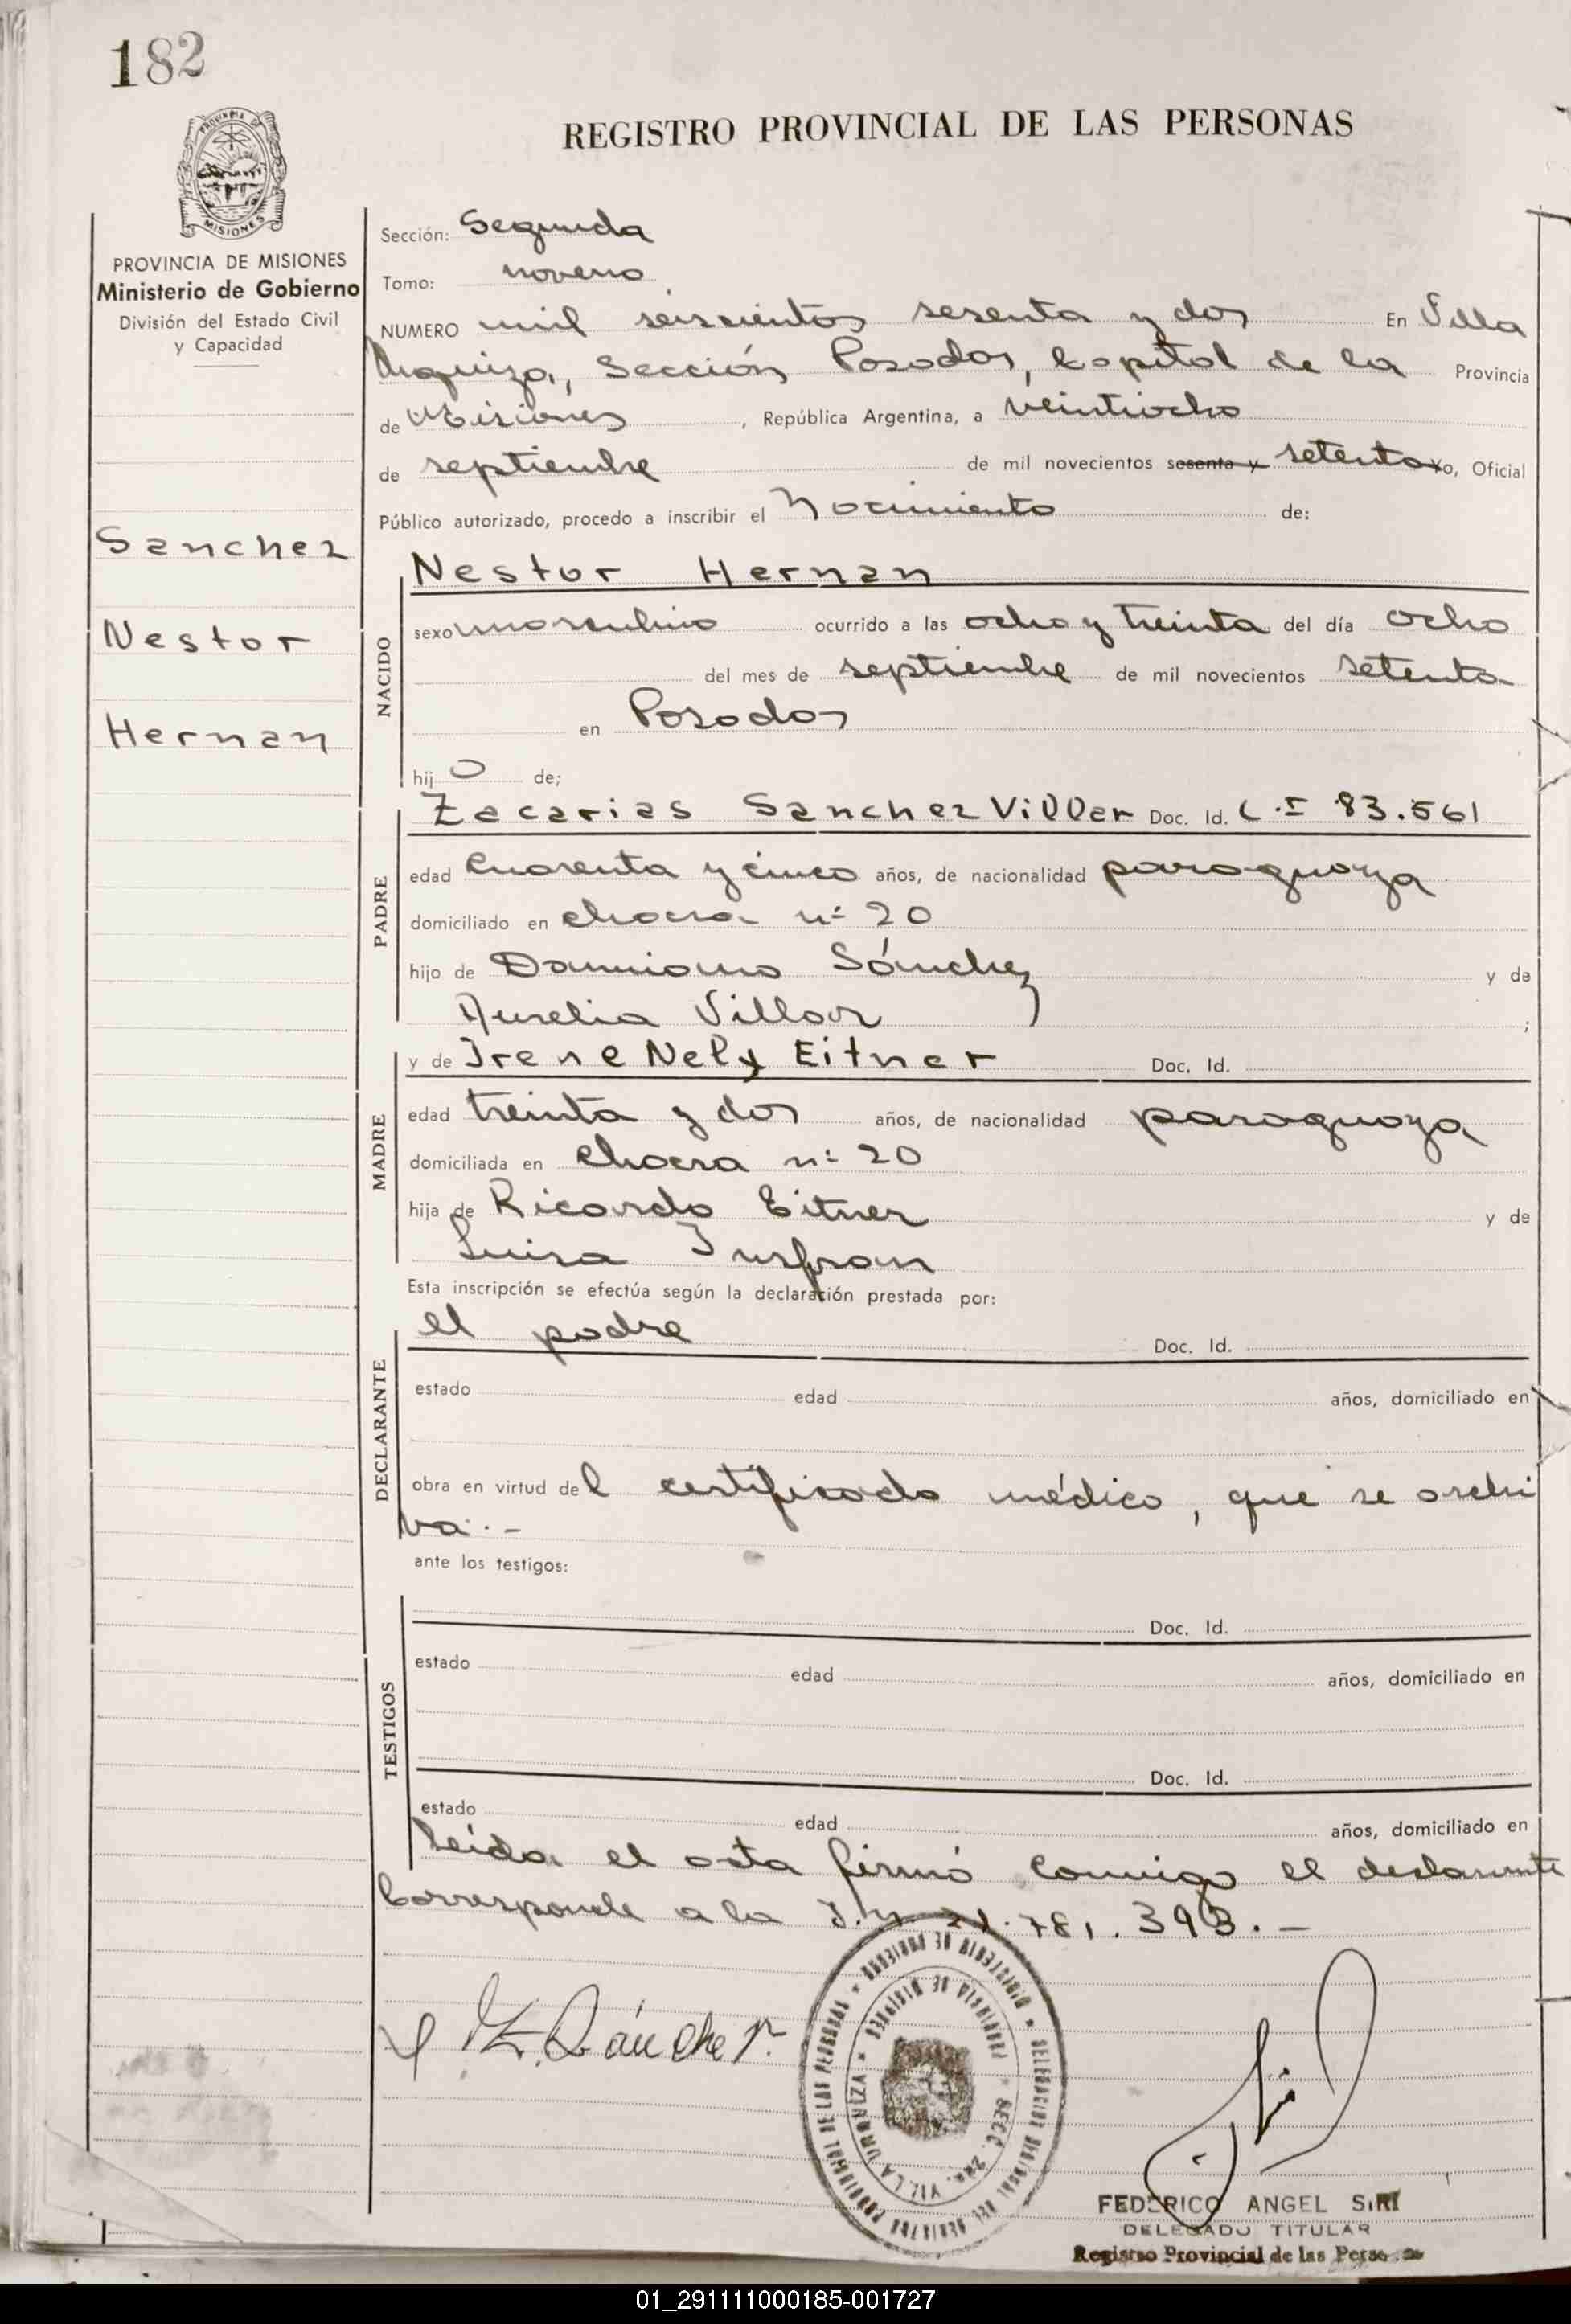 182
REGISTRO PROVINCIAL DE LAS PERSONAS
PROVINCIA DE MISIONES
Ministerio de Gobierno
División del Estado Civil
y Capacidad
Sanchez
Nestor
Hernan
Sección: Segunda
Tomo: noveno
NUMERO mil seiscientos sesenta y dos En Villa
Urquiza, Sección Posadas, Capital de la Provincia
de Misiones, República Argentina, a veintiocho
de septiembre de mil novecientos sesenta y setenta yo, Oficial
Público autorizado, procedo a inscribir el Nacimiento de:
NACIDO
Nestor Hernan
sexo masculino ocurrido a las ocho y treinta del día ocho
del mes de septiembre de mil novecientos setenta
en Posadas
hijo de;
PADRE
Zacarias Sanchez Villar Doc. Id. C.I 83.561
edad cuarenta y cinco años, de nacionalidad paraguaya
domiciliado en chacra nº 20
hijo de Damiano Sánchez y de
Aurelia Villar ;
MADRE
y de Irene Nely Eitner Doc. Id.
edad treinta y dos años, de nacionalidad paraguaya
domiciliada en chacra nº 20
hija de Ricardo Eitner y de
Luisa Insfran
Esta inscripción se efectúa según la declaración prestada por:
DECLARANTE
el padre Doc. Id.
estado edad años, domiciliado en
obra en virtud del certificado médico, que se archi
va.-
ante los testigos:
TESTIGOS
Doc. Id.
estado edad años, domiciliado en
Doc. Id.
estado edad años, domiciliado en
Leída el acta firmó conmigo el declarante
Corresponde a la 21.781.393.-
Z. Sánchez V.
PROVINCIA DE MISIONES * SECC. 2da. VILLA URQUIZA *
FEDERICO ANGEL SIRI
DELEGADO TITULAR
Registro Provincial de las Personas
01_291111000185-001727